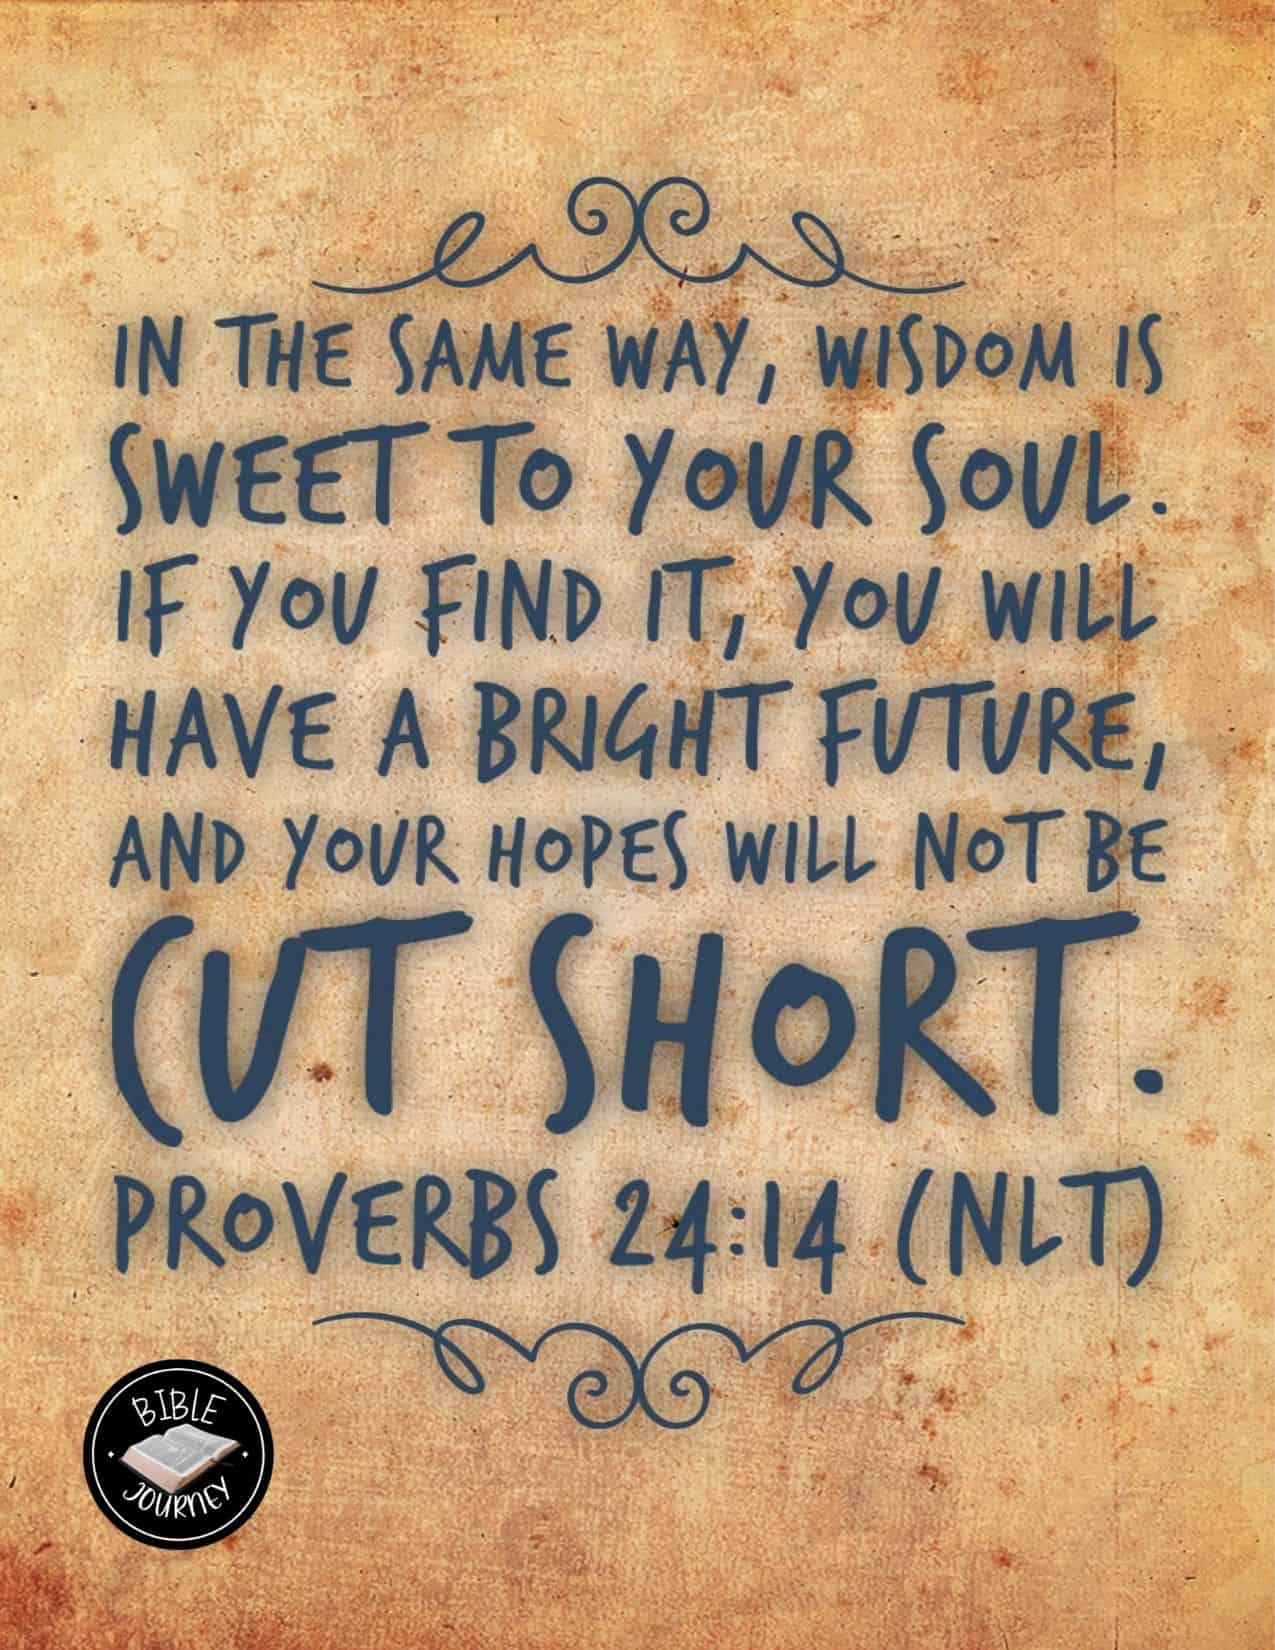 IN THE SAME WAY, WISDOM IS
SWEET TO YOUR SOUL.
IF YOU FIND IT, YOU WILL
HAVE A BRIGHT FUTURE,
AND YOUR HOPES WILL NOT BE
CUT SHORT.
PROVERBS 24:14 (NLT)
BIBLE
JOURNEY